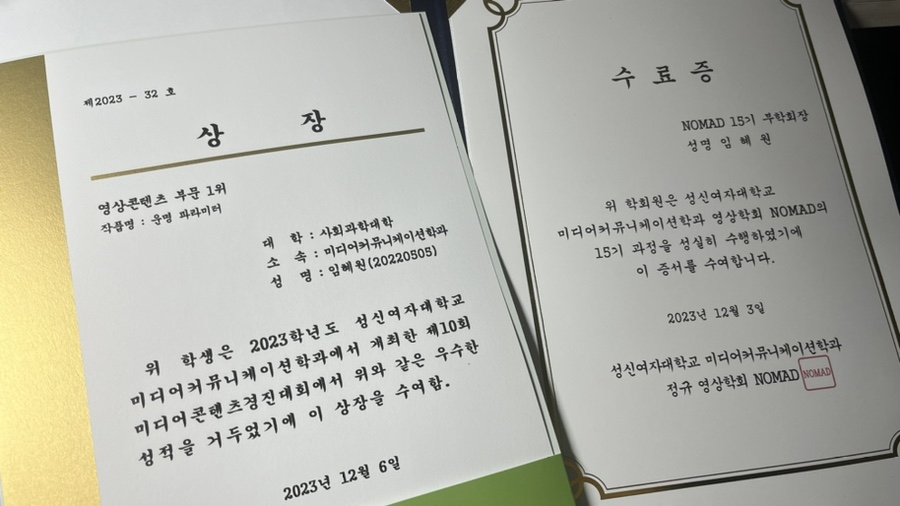 제2023 - 32 호
상 장
영상콘텐츠 부문 1위
작품명 : 운명 파라미터
대 학 : 사회과학대학
소 속 : 미디어커뮤니케이션학과
성 명 : 임혜원(20220505)
위 학생은 2023학년도 성신여자대학교
미디어커뮤니케이션학과에서 개최한 제10회
미디어콘텐츠경진대회에서 위와 같은 우수한
성적을 거두었기에 이 상장을 수여함.
2023년 12월 6일
수 료 증
NOMAD 15기 부학회장
성명 임 혜 원
위 학회원은 성신여자대학교
미디어커뮤니케이션학과 영상학회 NOMAD의
15기 과정을 성실히 수행하였기에
이 증서를 수여합니다.
2023년 12월 3일
성신여자대학교 미디어커뮤니케이션학과
정규 영상학회 NOMAD
NOMAD